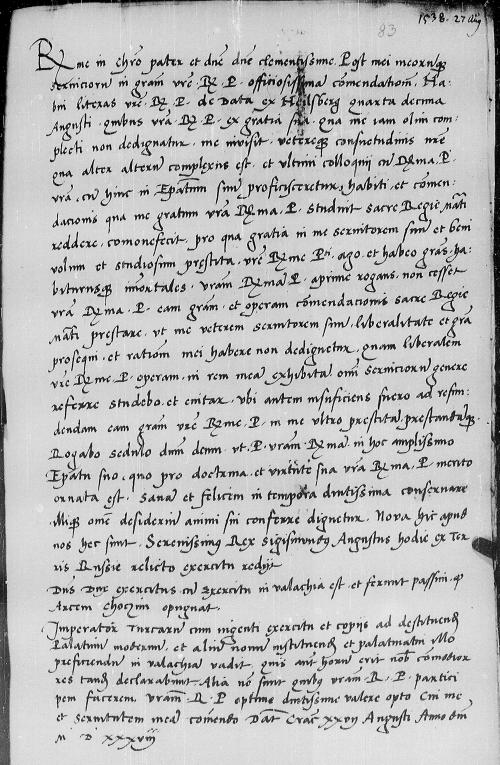 1538. 27 Aug
83
Rme in chro pater et dne dne clementissime. Post mei meorumq
servitiorum in gram vre R. P. officiosissima comendationem. Ha-
bui literas vre R. P. de Data ex Heilsberg quarta decima
Augusti. quibus vra R. P. ex gratia sua. qua me iam olim com-
plecti non dedignatur. me invisit. veterisq consuetudinis nre
qua alter alterum complexus est. et ultimi colloquii cum Rma. P.
vra. cum hinc in Epatum suum proficisceretur, habiti. et comen-
dationis qua me gratum vra Rma. P. studuit sacre Regie Mati
reddere. comonefecit. pro qua gratia in me servitorem suum et beni
volum et studiosum prestita. vre Rme Pti. ago. et habeo gras. ha-
biturusq imortales. vram Rma P. apprime rogans. non cesset
vra Rma. P. eam gram. et operam comendationis sacre Regie
Mati prestare. ut me veterem servitorem suum, liberalitate et gra
prosequi. et rationem mei habere non dedignetur. quam liberalem
vre Rme. P. operam. in rem meam exhibitam omni servitiorum genere
referre studebo. et enitar. ubi autem insufficiens fuero ad refun-
dendam eam gram vre Rme. P. in me ultro prestitam. prestandamq.
Rogabo sedulo dnum deum. ut. P. vram. Rma in hoc amplissimo
Epatu suo. quo pro doctrina. et virtute sua vra Rma. P. merito
ornata est. Sanam et felicem in tempora diutissima conservare
illiq omne desiderium animi sui conferre dignetur. Nova hic apud
nos hec sunt. Serenissimus Rex Sigismundus Augustus hodie ex Ter-
ris Russie relicto exercitu rediit
Dns Dux exercitus cum exercitu in valachia est. et feruntur passim. q
Arcem Choczim opugnat.
Imperator Turcarum cum ingenti exercitu et copiis ad destituendum
Palatinum modernum. et alium novum instituendum et palatinatui illo
preficiendum in valachia vadit. quis aut horum erit nobis comodior
res tandem declarabitur. Alia no sunt quibus vram. R. P. partici
pem facerem. vram. R. P optime diutissime valere opto Cui me
et servitutem meam comendo Dat Crac xxvii Augusti Anno dni
M D xxxviii